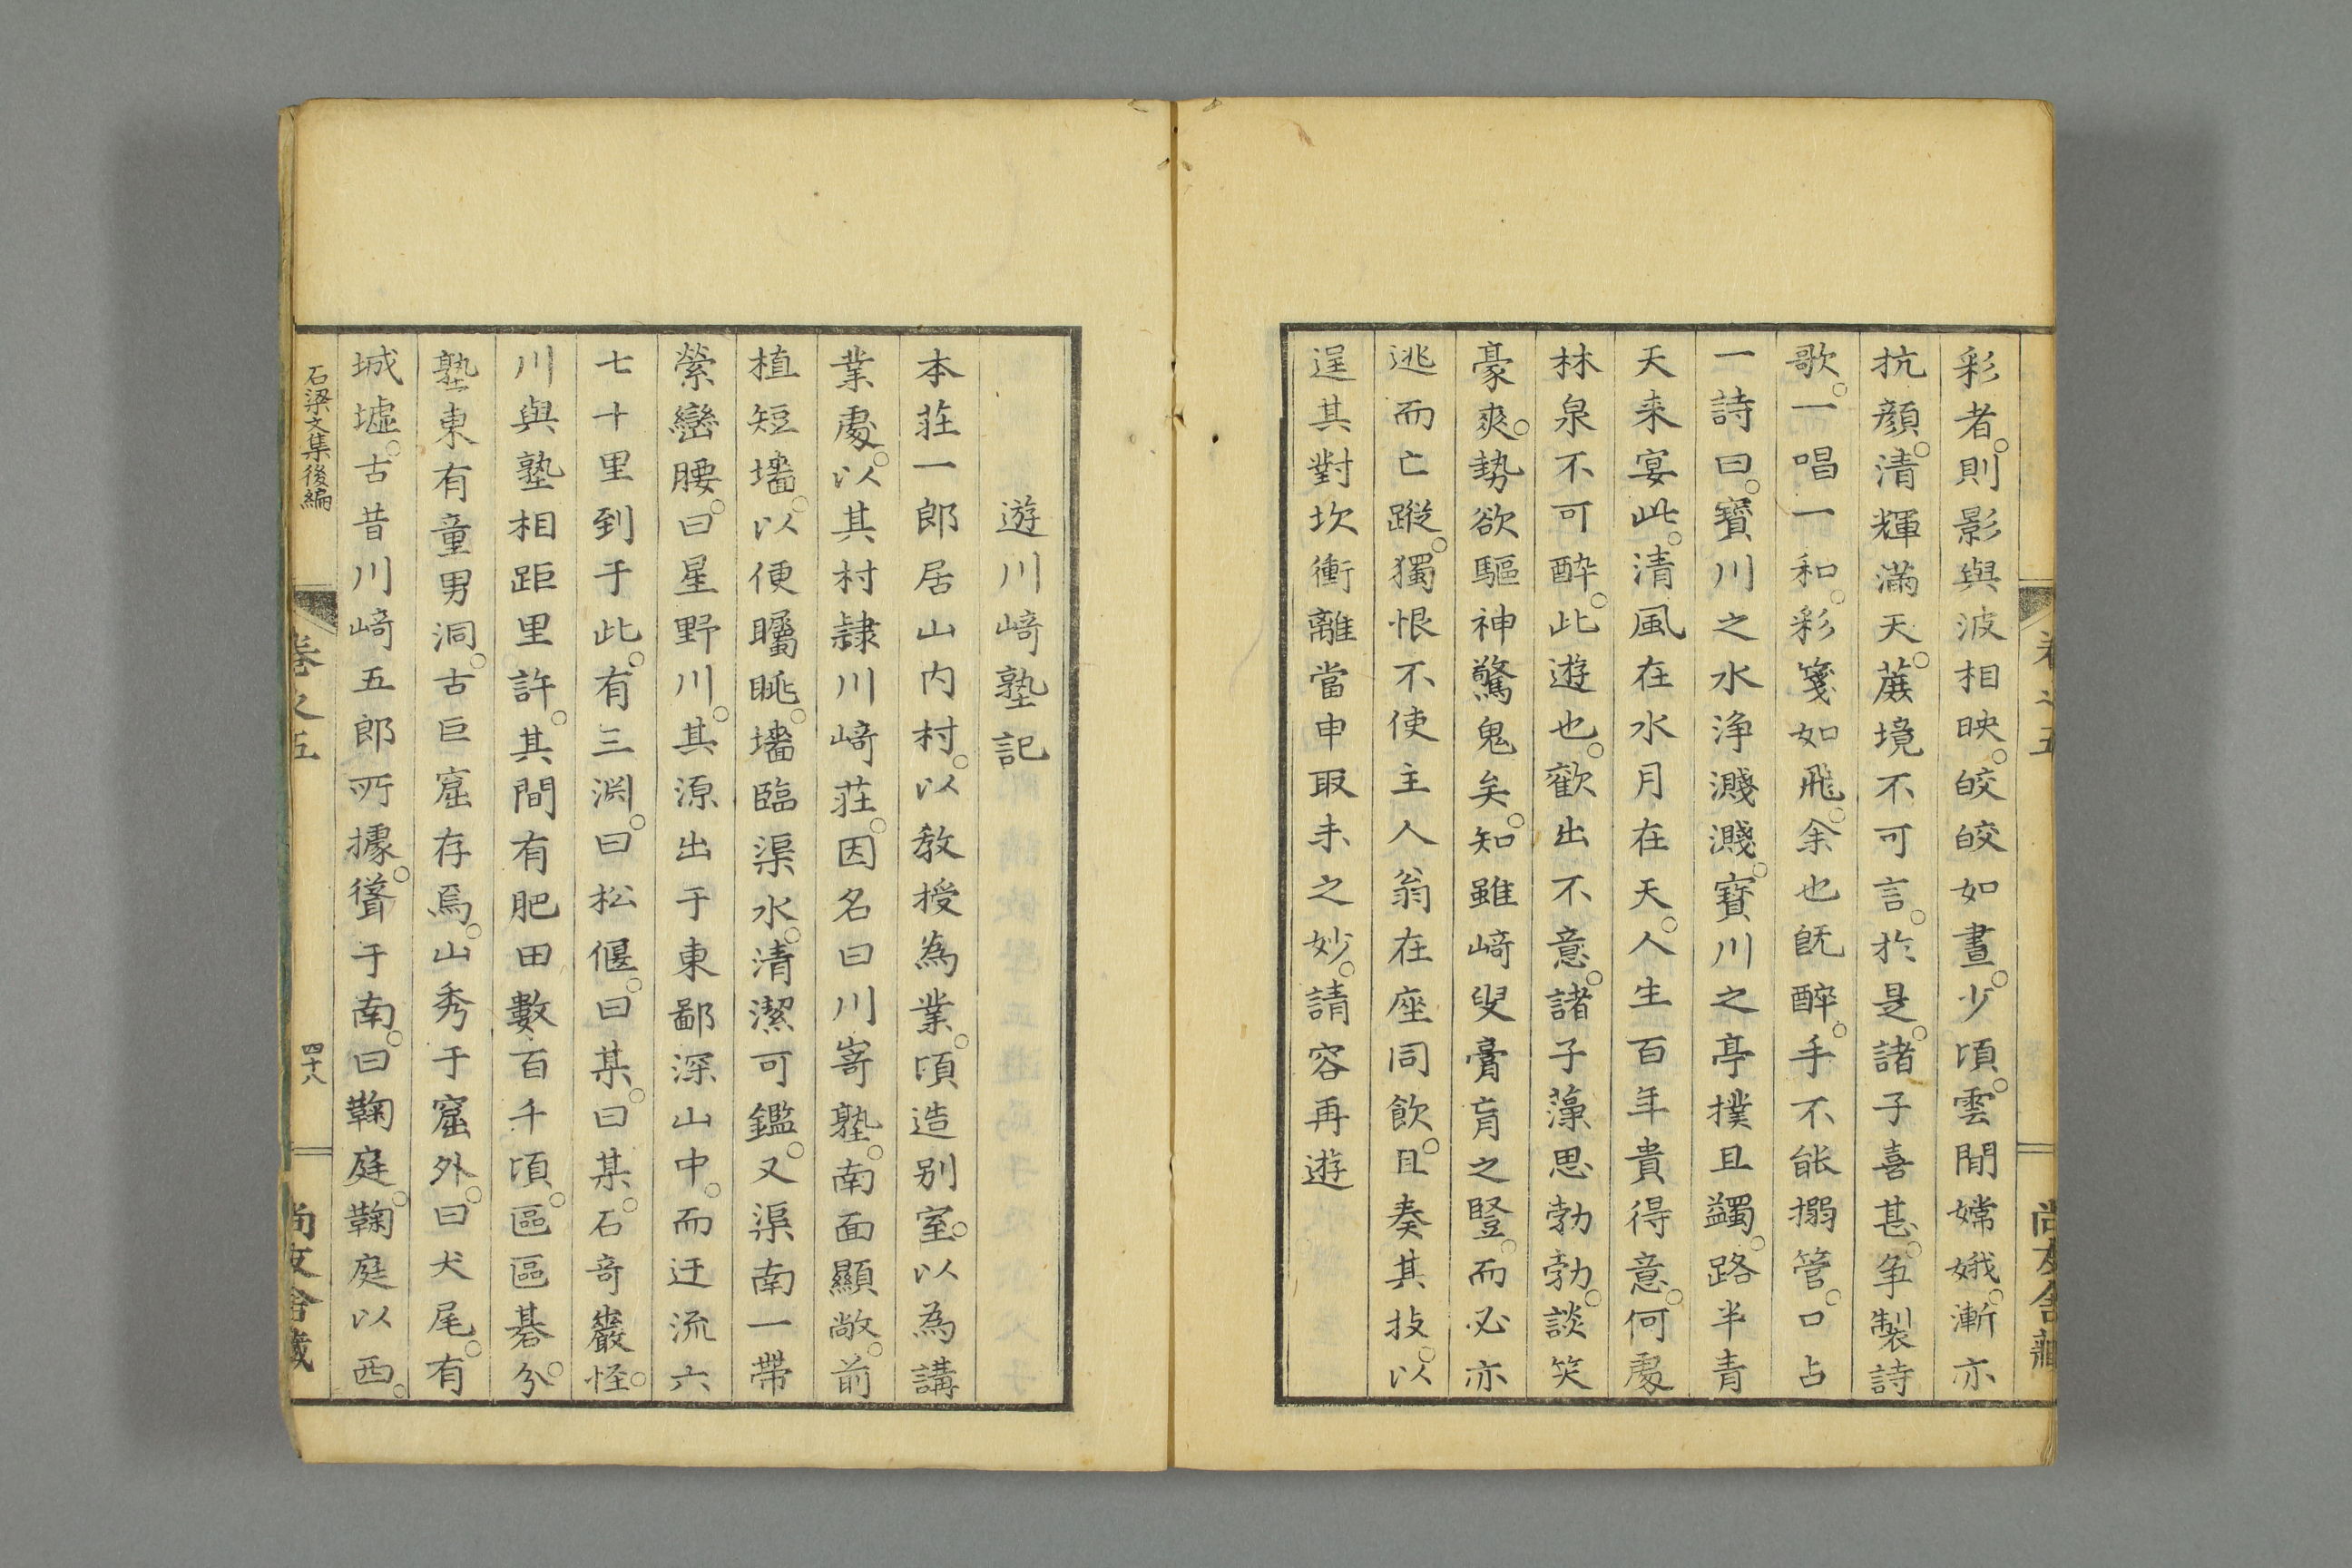 彩者。則影與波相映。皎皎如晝。少頃。雲間嫦娥。漸亦
抗顏。清輝滿天。䕃境不可言。於是。諸子喜甚。爭製詩
歌。一唱一和。彩箋如飛。余也既醉。手不能搦管。口占
一詩曰。寶川之水浄濺濺。寶川之亭撲且蠲。路半青
天来宴此。清風在水月在天。人生百年貴得意。何處
林泉不可酔。此遊也。歡出不意。諸子藻思勃勃。談笑
豪爽。勢欲驅神驚鬼矣。知雖﨑叟膏肓之豎。而必亦
逃而亡蹤。獨恨不使主人翁在座同飲。且奏其技。以
逞其對坎衝離當申取未之妙。請容再遊
遊川﨑塾記
本莊一郎居山内村。以教授為業。頃造别室。以為講
業處。以其村隷川﨑莊。因名曰川嵜塾。南面顯敞。前
植短墻。以便矚眺。墻臨渠水。清潔可鑑。又渠南一帶
縈巒腰。曰星野川。其源出于東鄙深山中。而迂流六
七十里到于此。有三淵。曰松偃。曰某。曰某。石奇巖怪。
川與塾相距里許。其間有肥田數百千頃。區區碁分。
塾東有童男洞。古巨窟存焉。山秀于窟外。曰犬尾。有
城墟。古昔川﨑五郎所據。聳于南。曰鞠庭。鞠庭以西。
石梁文集後編
卷之五
四十八
尚友舍藏